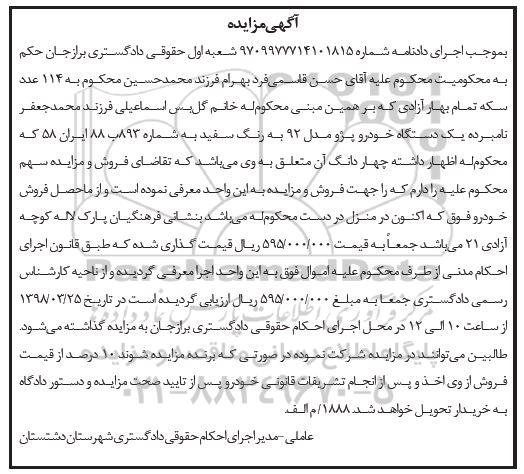 آگهی‌مزایده
بموجب اجرای دادنامه شماره ۹۷۰۹۹۷۷۷۱۴۱۰۱۸۱۵ شعبه اول حقوقی دادگستری برازجان حکم
به محکومیت محکوم علیه آقای حسن قاسمی‌فرد بهرام فرزند محمدحسین محکوم به ۱۱۴ عدد
سکه تمام بهار آزادی که بر همین مبنی محکوم‌له خانم گل‌یس اسماعیلی فرزند محمدجعفر
نامبرده یک دستگاه خودرو پژو مدل ۹۲ به رنگ سفید به شماره ۸۹۳ب ۸۸ ایران ۵۸ که
محکوم‌له اظهار داشته چهار دانگ آن متعلق به وی می‌باشد که تقاضای فروش و مزایده سهم
محکوم علیه را دارم که را جهت فروش و مزایده به این واحد معرفی نموده است و از ماحصل فروش
خودرو فوق که اکنون در منزل در دست محکوم‌له می‌باشد بنشانی فرهنگیان پارک لاله کوچه
آزادی ۲۱ می‌باشد جمعاً به قیمت ۵۹۵/۰۰۰/۰۰۰ ریال قیمت گذاری شده که طبق قانون اجرای
احکام مدنی از طرف محکوم علیه اموال فوق به این واحد اجرا معرفی گردیده و از ناحیه کارشناس
رسمی دادگستری جمعاً به مبلغ ۵۹۵/۰۰۰/۰۰۰ ریال ارزیابی گردیده است در تاریخ ۱۳۹۸/۰۳/۲۵
از ساعت ۱۰ الی ۱۲ در محل اجرای احکام حقوقی دادگستری برازجان به مزایده گذاشته می‌شود.
طالبین می‌توانند در مزایده شرکت نموده در صورتی که برنده مزایده شوند ۱۰ درصد از قیمت
فروش از وی اخذ و پس از انجام تشریفات قانونی خودرو پس از تایید صحت مزایده و دستور دادگاه
به خریدار تحویل خواهد شد. ۱۸۸۸/ م الف.
عاملی -مدیر اجرای احکام حقوقی دادگستری شهرستان دشتستان
ParsNamadData
۰۲۱-۸۸۳۴۹۶۷۰-۵